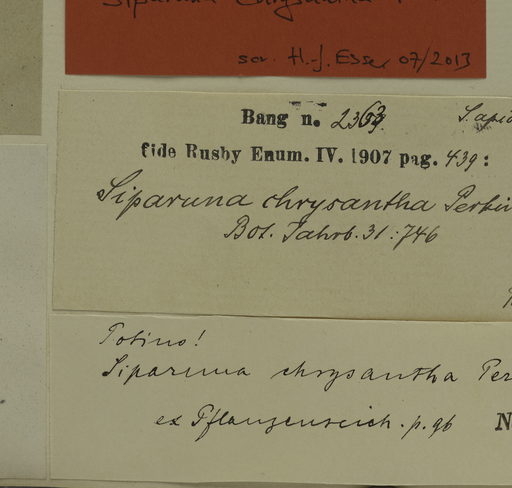 Siparuna chrysantha
scr. H.-J. Esser 07/2013
Bang n. 2363.
fide Rusby Enum. IV. 1907 pag. 439:
Siparuna chrysantha Perkin
Bot. Jahrb. 31:746
Potius!
Siparuna chrysantha Per
ex Pflanzenreich. p. 96
N